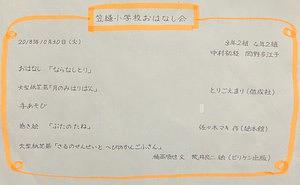 笠縫小学校おはなし会
2018年10月30日(火)
3年2組 4年2組
おはなし 「ならなしとり」
大型紙芝居「月のみはりばん」
とりごえまり(偕成社)
手あそび
巻き絵 「ぶたのたね」
佐々木マキ 作(絵本館)
大型紙芝居 「さるのせんせいと へびのかんごふさん」
穂高順也 文 荒井良二 絵(ビリケン出版)